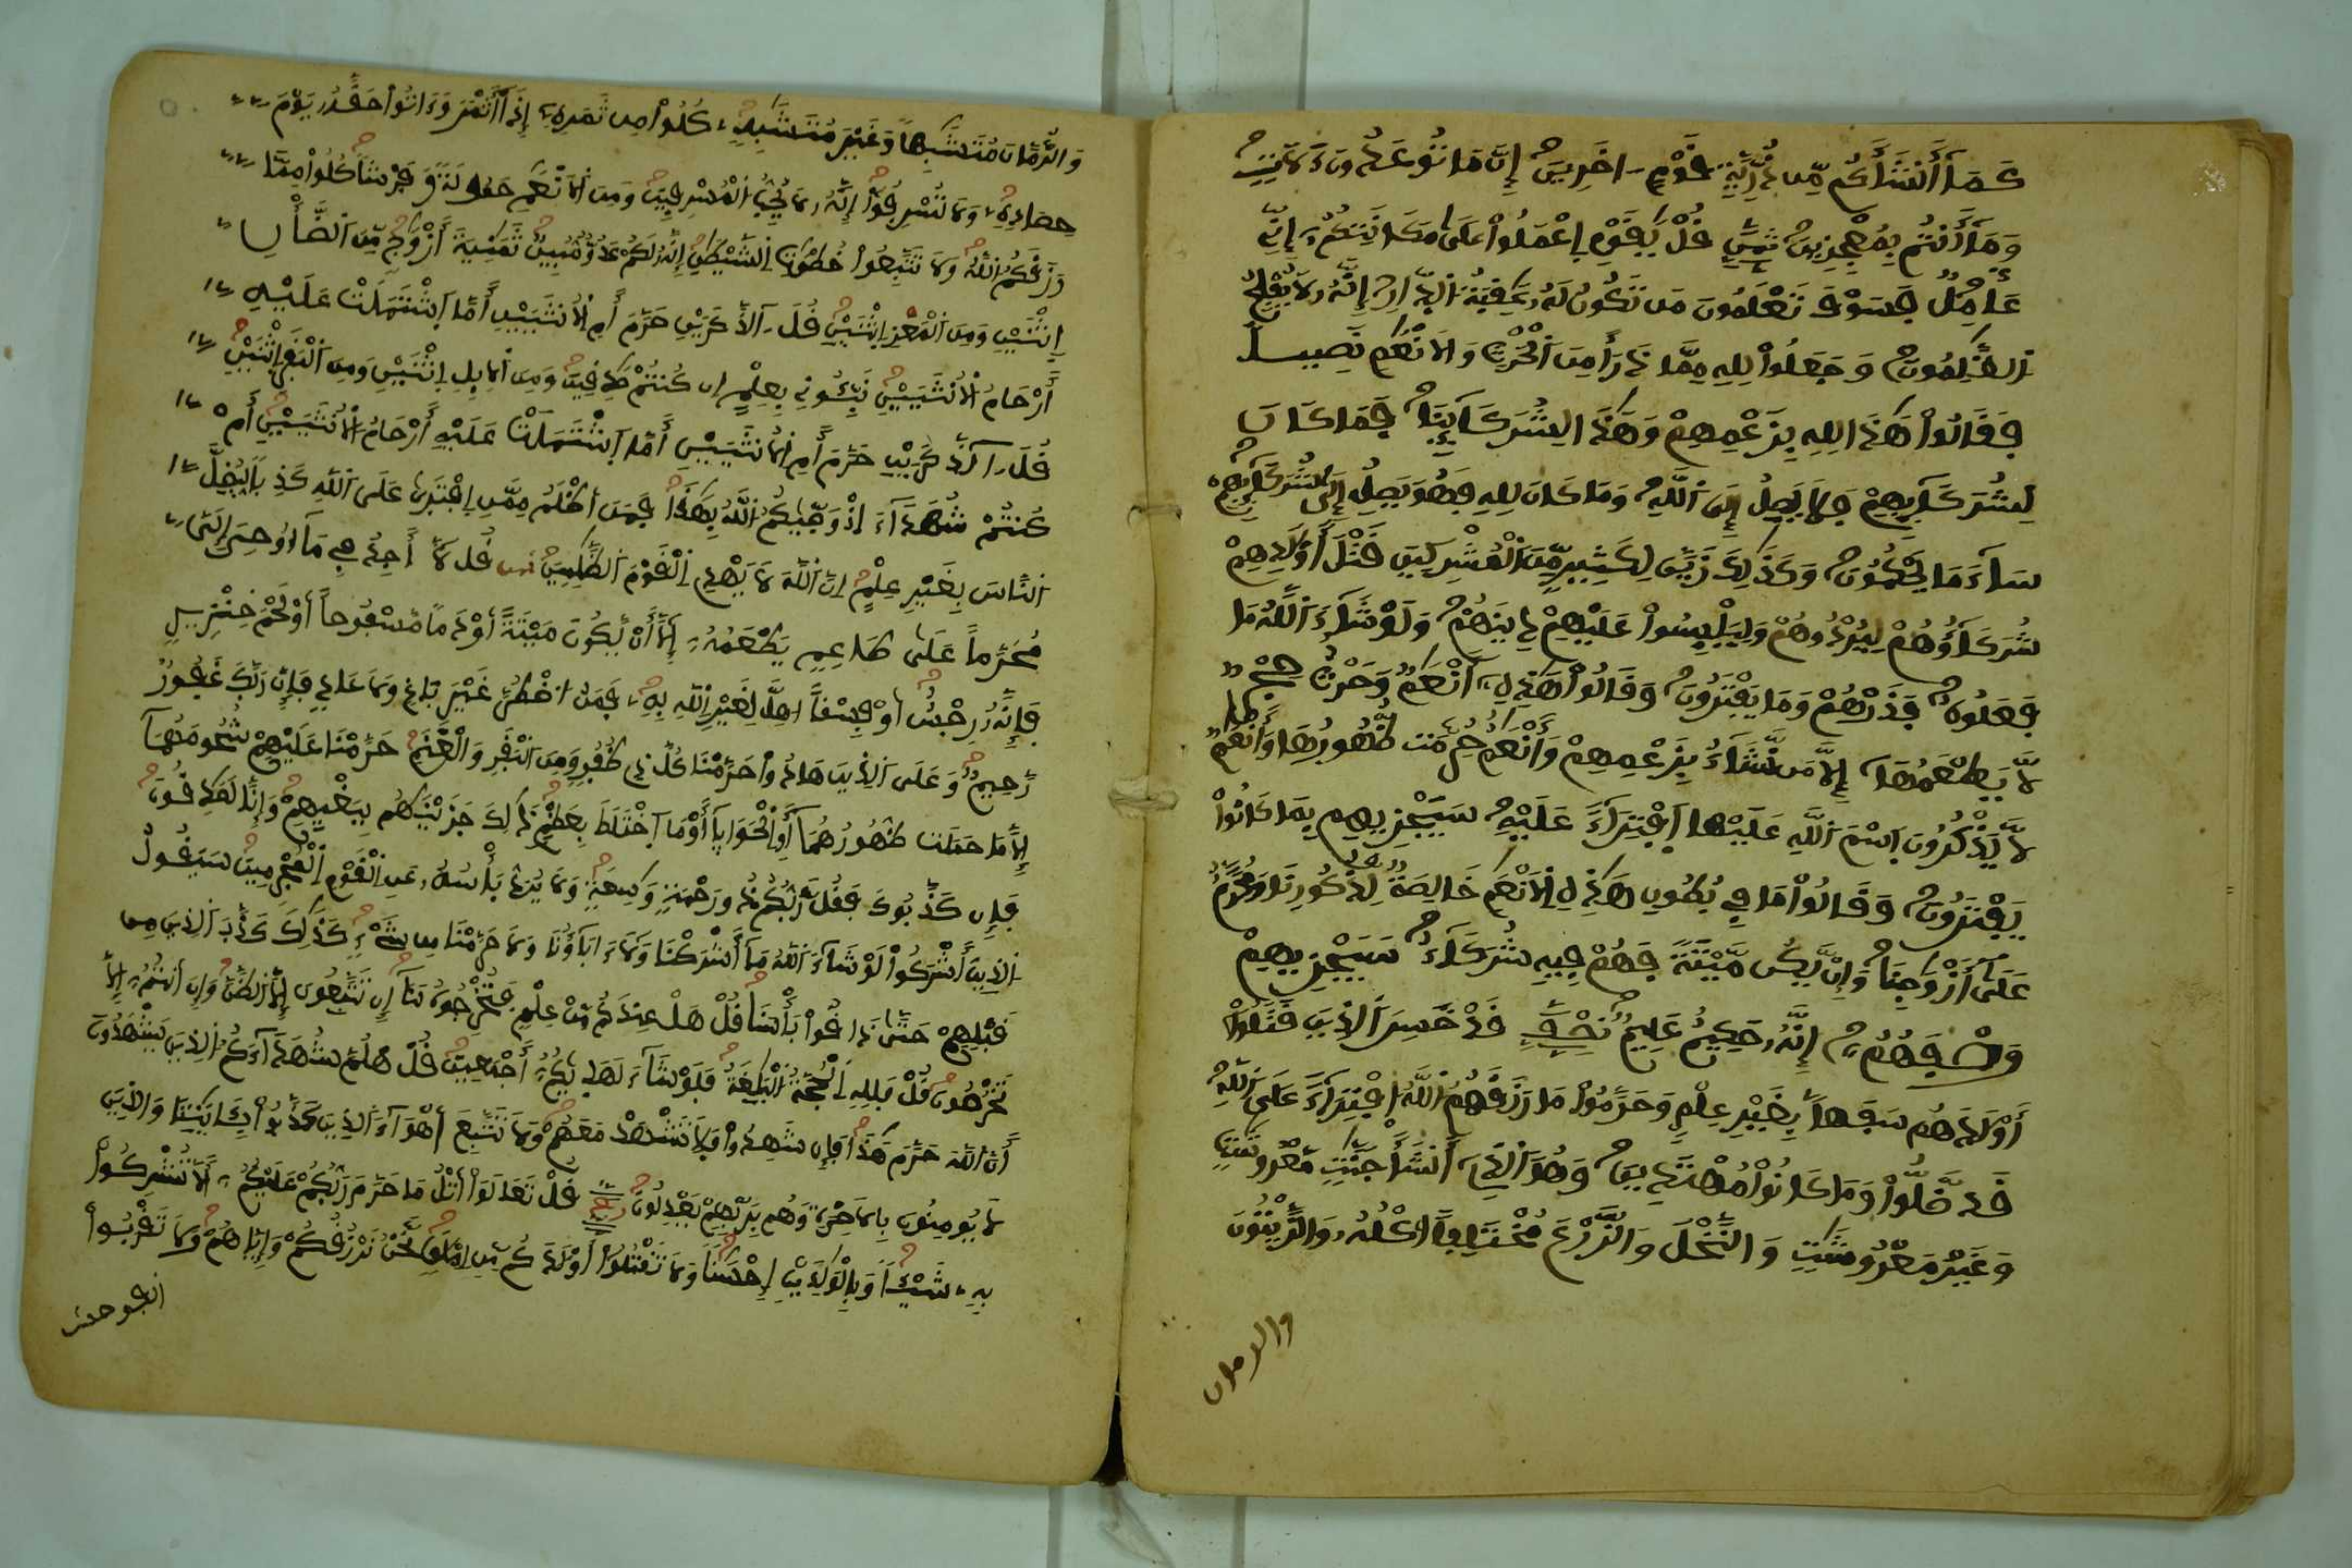 كَمَآ أَنشَأَكُم مِّن ذُرِّيَّةِ قَوْمٍ اخَرِينَ إِنَّ مَا تُوعَدُونَ ءَلَاتٍ
وَمَآ أَنتُم بِمُعْجِزِينَ ثمن قُلْ يَٰقَوْمِ اِعْمَلُوا۟ عَلَىٰ مَكَانَتِكُمُۥٓ إِنِّے
عَامِلٌ فَسَوْفَ تَعْلَمُونَ مَن تَكُونُ لَهُۥ عَٰقِبَةُ اُ۬لدّ۪ارِ إِنَّهُۥ لَا يُفْلِحُ
اُ۬لظَّٰلِمُونَ وَجَعَلُوا۟ لِلهِ مِمَّا ذَرَأَ مِنَ اَ۬لْحَرْثِ وَالَانْعَٰمِ نَصِيباً
فَقَالُوا۟ هَٰذَا لِلهِ بِزَعْمِهِمْ وَهَٰذَا لِشُرَكَآئِنَا فَمَا كَانَ
لِشُرَكَآئِهِمْ فَلَا يَصِلُ إِلَى اَ۬للَّهِ وَمَا كَانَ لِلهِ فَهُوَ يَصِلُ إِلَىٰ شُرَكَآئِهِمْ
سَآءَ مَا يَحْكُمُونَ وَكَذَٰلِكَ زَيَّنَ لِكَثِيرٍ مِّنَ اَ۬لْمُشْرِكِينَ قَتْلَ أَوْلَٰدِهِمْ
شُرَكَآؤُهُمْ لِيُرْدُوهُمْ وَلِيَلْبِسُوا۟ عَلَيْهِمْ دِينَهُمْ وَلَوْ شَآءَ اَ۬للَّهُ مَا
فَعَلُوهُ فَذَرْهُمْ وَمَا يَفْتَرُونَ وَقَالُوا۟ هَٰذِهِۦٓ أَنْعَٰمٌ وَحَرْثٌ حِجْرٌ
لَّا يَطْعَمُهَآ إِلَّا مَن نَّشَآءُ بِزَعْمِهِمْ وَأَنْعَٰمٌ حُرِّمَت ظُّهُورُهَا وَأَنْعَٰمٌ
لَّا يَذْكُرُونَ اَ۪سْمَ اَ۬للَّهِ عَلَيْهَا اَ۪فْتِرَآءً عَلَيْهِ سَيَجْزِيهِم بِمَا كَانُوا۟
يَفْتَرُونَ وَقَالُوا۟ مَا فِے بُطُونِ هَٰذِهِ اِ۬لَانْعَٰمِ خَالِصَةٌ لِّذُكُورِنَا وَمُحَرَّمٌ
عَلَىٰ أَزْوَٰجِنَا وَإِنْ يَّكُن مَّيْتَةً فَهُمْ فِيهِ شُرَكَآءُ سَيَجْزِيهِمْ
وَصْفَهُمُۥٓ إِنَّهُۥ حَكِيمٌ عَلِيمٌ نصف قَدْ خَسِرَ اَ۬لذِينَ قَتَلُوٓا۟
أَوْلَٰدَهُم سَفَهاً بِغَيْرِ عِلْمٍ وَحَرَّمُوا۟ مَا رَزَقَهُمُ اُ۬للَّهُ اُ۪فْتِرَآءً عَلَى اَ۬للَّهِ
قَد ضَّلُّوا۟ وَمَا كَانُوا۟ مُهْتَدِينَ وَهُوَ اَ۬لذِےٓ أَنشَأَ جَنَّٰتٍ مَّعْرُوشَٰتٍ
وَغَيْرَ مَعْرُوشَٰتٍ وَالنَّخْلَ وَالزَّرْعَ مُخْتَلِفاً اُكْلُهُۥ وَالزَّيْتُونَ
والرمان
وَالرُّمَّانَ مُتَشَٰبِهاً وَغَيْرَ مُتَشَٰبِهٍ كُلُوا۟ مِن ثَمَرِهِۦٓ إِذَآ أَثْمَرَ وَءَاتُوا۟ حَقَّهُۥ يَوْمَ
حِصَادِهِۦ وَلَا تُسْرِفُوٓا۟ إِنَّهُۥ لَا يُحِبُّ اُ۬لْمُسْرِفِينَ وَمِنَ اَ۬لَانْعَٰمِ حَمُولَةً وَفَرْشاً كُلُوا۟ مِمَّا
رَزَقَكُمُ اُ۬للَّهُ وَلَا تَتَّبِعُوا۟ خُطُوَٰتِ اِ۬لشَّيْطَٰنِ إِنَّهُۥ لَكُمْ عَدُوٌّ مُّبِينٌ ثَمَٰنِيَةَ أَزْوَٰجٍ مِّنَ اَ۬لضَّأْنِ
اِ۪ثْنَيْنِ وَمِنَ اَ۬لْمَعْزِ اِ۪ثْنَيْنِ قُلَ آلذَّكَرَيْنِ حَرَّمَ أَمِ اِ۬لُانثَيَيْنِ أَمَّا اَ۪شْتَمَلَتْ عَلَيْهِ
أَرْحَامُ اُ۬لُانثَيَيْنِ نَبِّـُٔونِے بِعِلْمٍ اِن كُنتُمْ صَٰدِقِينَ وَمِنَ اَ۬لِابِلِ اِ۪ثْنَيْنِ وَمِنَ اَ۬لْبَقَرِ اِ۪ثْنَيْنِ
قُلَ آلذَّكَرَيْنِ حَرَّمَ أَمِ اِ۬لُانثَيَيْنِ أَمَّا اَ۪شْتَمَلَتْ عَلَيْهِ أَرْحَامُ اُ۬لُانثَيَيْنِ أَمْ
كُنتُمْ شُهَدَآءَ اِذْ وَصّ۪ىٰكُمُ اُ۬للَّهُ بِهَٰذَا فَمَنَ اَظْلَمُ مِمَّنِ اِ۪فْتَرَىٰ عَلَى اَ۬للَّهِ كَذِباً لِّيُضِلَّ
اَ۬لنَّاسَ بِغَيْرِ عِلْمٍ اِنَّ اَ۬للَّهَ لَا يَهْدِے اِ۬لْقَوْمَ اَ۬لظَّٰلِمِينَ ثمن قُل لَّآ أَجِدُ فِے مَآ أُوحِيَ إِلَىَّ
مُحَرَّماً عَلَىٰ طَاعِمٍ يَطْعَمُهُۥٓ إِلَّآ أَنْ يَّكُونَ مَيْتَةً أَوْ دَماً مَّسْفُوحاً أَوْ لَحْمَ خِنزِيرٍ
فَإِنَّهُۥ رِجْسٌ اَوْ فِسْقاً اُهِلَّ لِغَيْرِ اِ۬للَّهِ بِهِۦ فَمَنُ اُ۟ضْطُرَّ غَيْرَ بَاغٍ وَلَا عَادٍ فَإِنَّ رَبَّكَ غَفُورٌ
رَّحِيمٌ وَعَلَى اَ۬لذِينَ هَادُوا۟ حَرَّمْنَا كُلَّ ذِے ظُفُرٍ وَمِنَ اَ۬لْبَقَرِ وَالْغَنَمِ حَرَّمْنَا عَلَيْهِمْ شُحُومَهُمَآ
إِلَّا مَا حَمَلَت ظُّهُورُهُمَآ أَوِ اِ۬لْحَوَايَآ أَوْ مَا اَ۪خْتَلَطَ بِعَظْمٍ ذَٰلِكَ جَزَيْنَٰهُم بِبَغْيِهِمْ وَإِنَّا لَصَٰدِقُونَ
فَإِن كَذَّبُوكَ فَقُل رَّبُّكُمْ ذُو رَحْمَةٍ وَٰسِعَةٍ وَلَا يُرَدُّ بَأْسُهُۥ عَنِ اِ۬لْقَوْمِ اِ۬لْمُجْرِمِينَ سَيَقُولُ
اُ۬لذِينَ أَشْرَكُوا۟ لَوْ شَآءَ اَ۬للَّهُ مَآ أَشْرَكْنَا وَلَآ ءَابَآؤُنَا وَلَا حَرَّمْنَا مِن شَےْءٍ كَذَٰلِكَ كَذَّبَ اَ۬لذِينَ مِن
قَبْلِهِمْ حَتَّىٰ ذَاقُوا۟ بَأْسَنَا قُلْ هَلْ عِندَكُم مِّنْ عِلْمٍ فَتُخْرِجُوهُ لَنَآ إِن تَتَّبِعُونَ إِلَّا اَ۬لظَّنَّ وَإِنَ اَنتُمُۥٓ إِلَّا
تَخْرُصُونَ قُلْ فَلِلهِ اِ۬لْحُجَّةُ اُ۬لْبَٰلِغَةُ فَلَوْ شَآءَ لَهَد۪ىٰكُمُۥٓ أَجْمَعِينَ قُلْ هَلُمَّ شُهَدَآءَكُمُ اُ۬لذِينَ يَشْهَدُونَ
أَنَّ اَ۬للَّهَ حَرَّمَ هَٰذَا فَإِن شَهِدُوا۟ فَلَا تَشْهَدْ مَعَهُمْ وَلَا تَتَّبِعَ اَهْوَآءَ اَ۬لذِينَ كَذَّبُوا۟ بِـَٔايَٰتِنَا وَالذِينَ
لَا يُومِنُونَ بِالَاخِرَةِ وَهُم بِرَبِّهِمْ يَعْدِلُونَ ربع قُلْ تَعَالَوَا۟ اَتْلُ مَا حَرَّمَ رَبُّكُمْ عَلَيْكُمُۥٓ أَلَّا تُشْرِكُوا۟
بِهِۦ شَيْـٔاً وَبِالْوَٰلِدَيْنِ إِحْسَٰناً وَلَا تَقْتُلُوٓا۟ أَوْلَٰدَكُم مِّنِ اِمْلَٰقٍ نَّحْنُ نَرْزُقُكُمْ وَإِيَّاهُمْ وَلَا تَقْرَبُوا۟
الفوحش